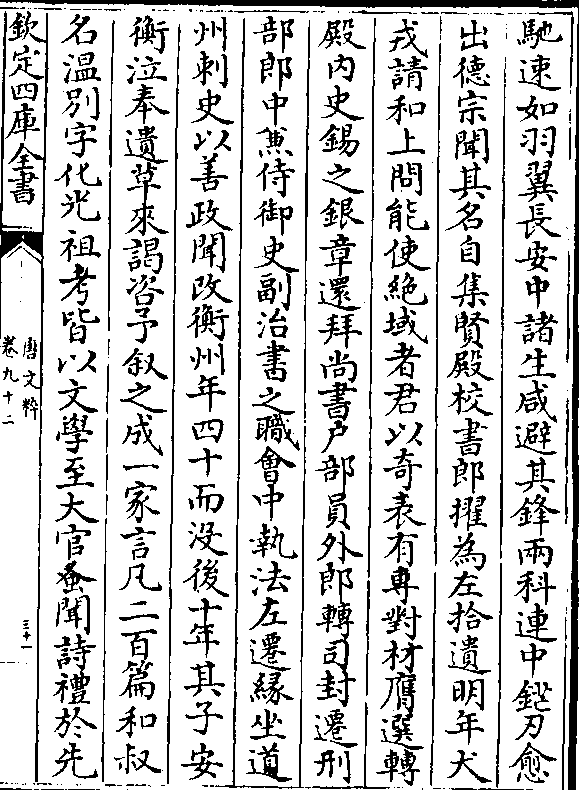 馳速如羽翼長安中諸生咸避其鋒兩科連中鋩刃愈
出德宗聞其名自集賢殿校書郎擢為左拾遺明年犬
戎請和上問能使絶域者君以奇表有專對材膺選轉
殿内史錫之銀章還拜尚書户部員外郎轉司封遷刑
部郎中兼侍御史副治書之職會中執法左遷縁坐道
州刺史以善政聞改衡州年四十而没後十年其子安
衡泣奉遺草來謁咨予叙之成一家言凡二百篇和叔
名溫别字化光祖考皆以文學至大官蚤聞詩禮於先
欽定四庫全書
唐文粹
卷九十二
三十一